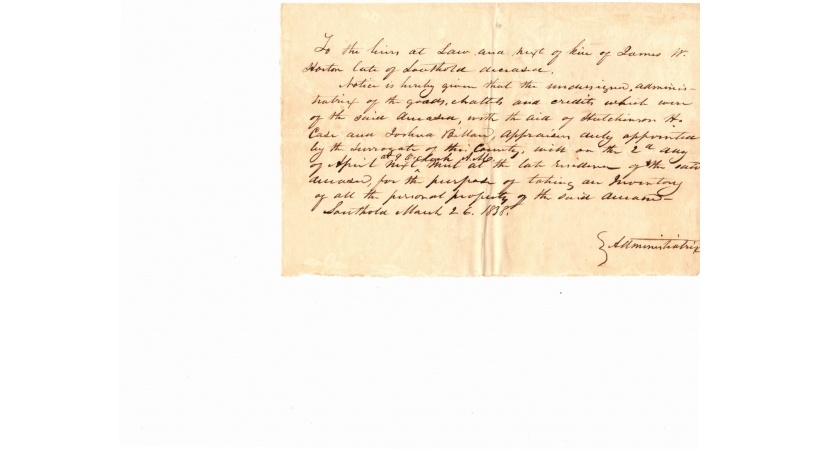 To the heirs at Law and next of kin of James W.
Horton late of Southold deceased.
Notice is hereby given that the undersigned, adminis-
tratrix of the goods, chattels and credits which were
of the said deceased, with the aid of Hutchinson H.
Case and Joshua B. Appraisers duly appointed
by the Surrogate of this County, will on the 2d day
at 9 O'clock A.M.
of April next meet at the late residence of the said
deceased, for the purpose of taking an Inventory
of all the personal property of the said deceased
Southold March 26. 1838.
Administratrix